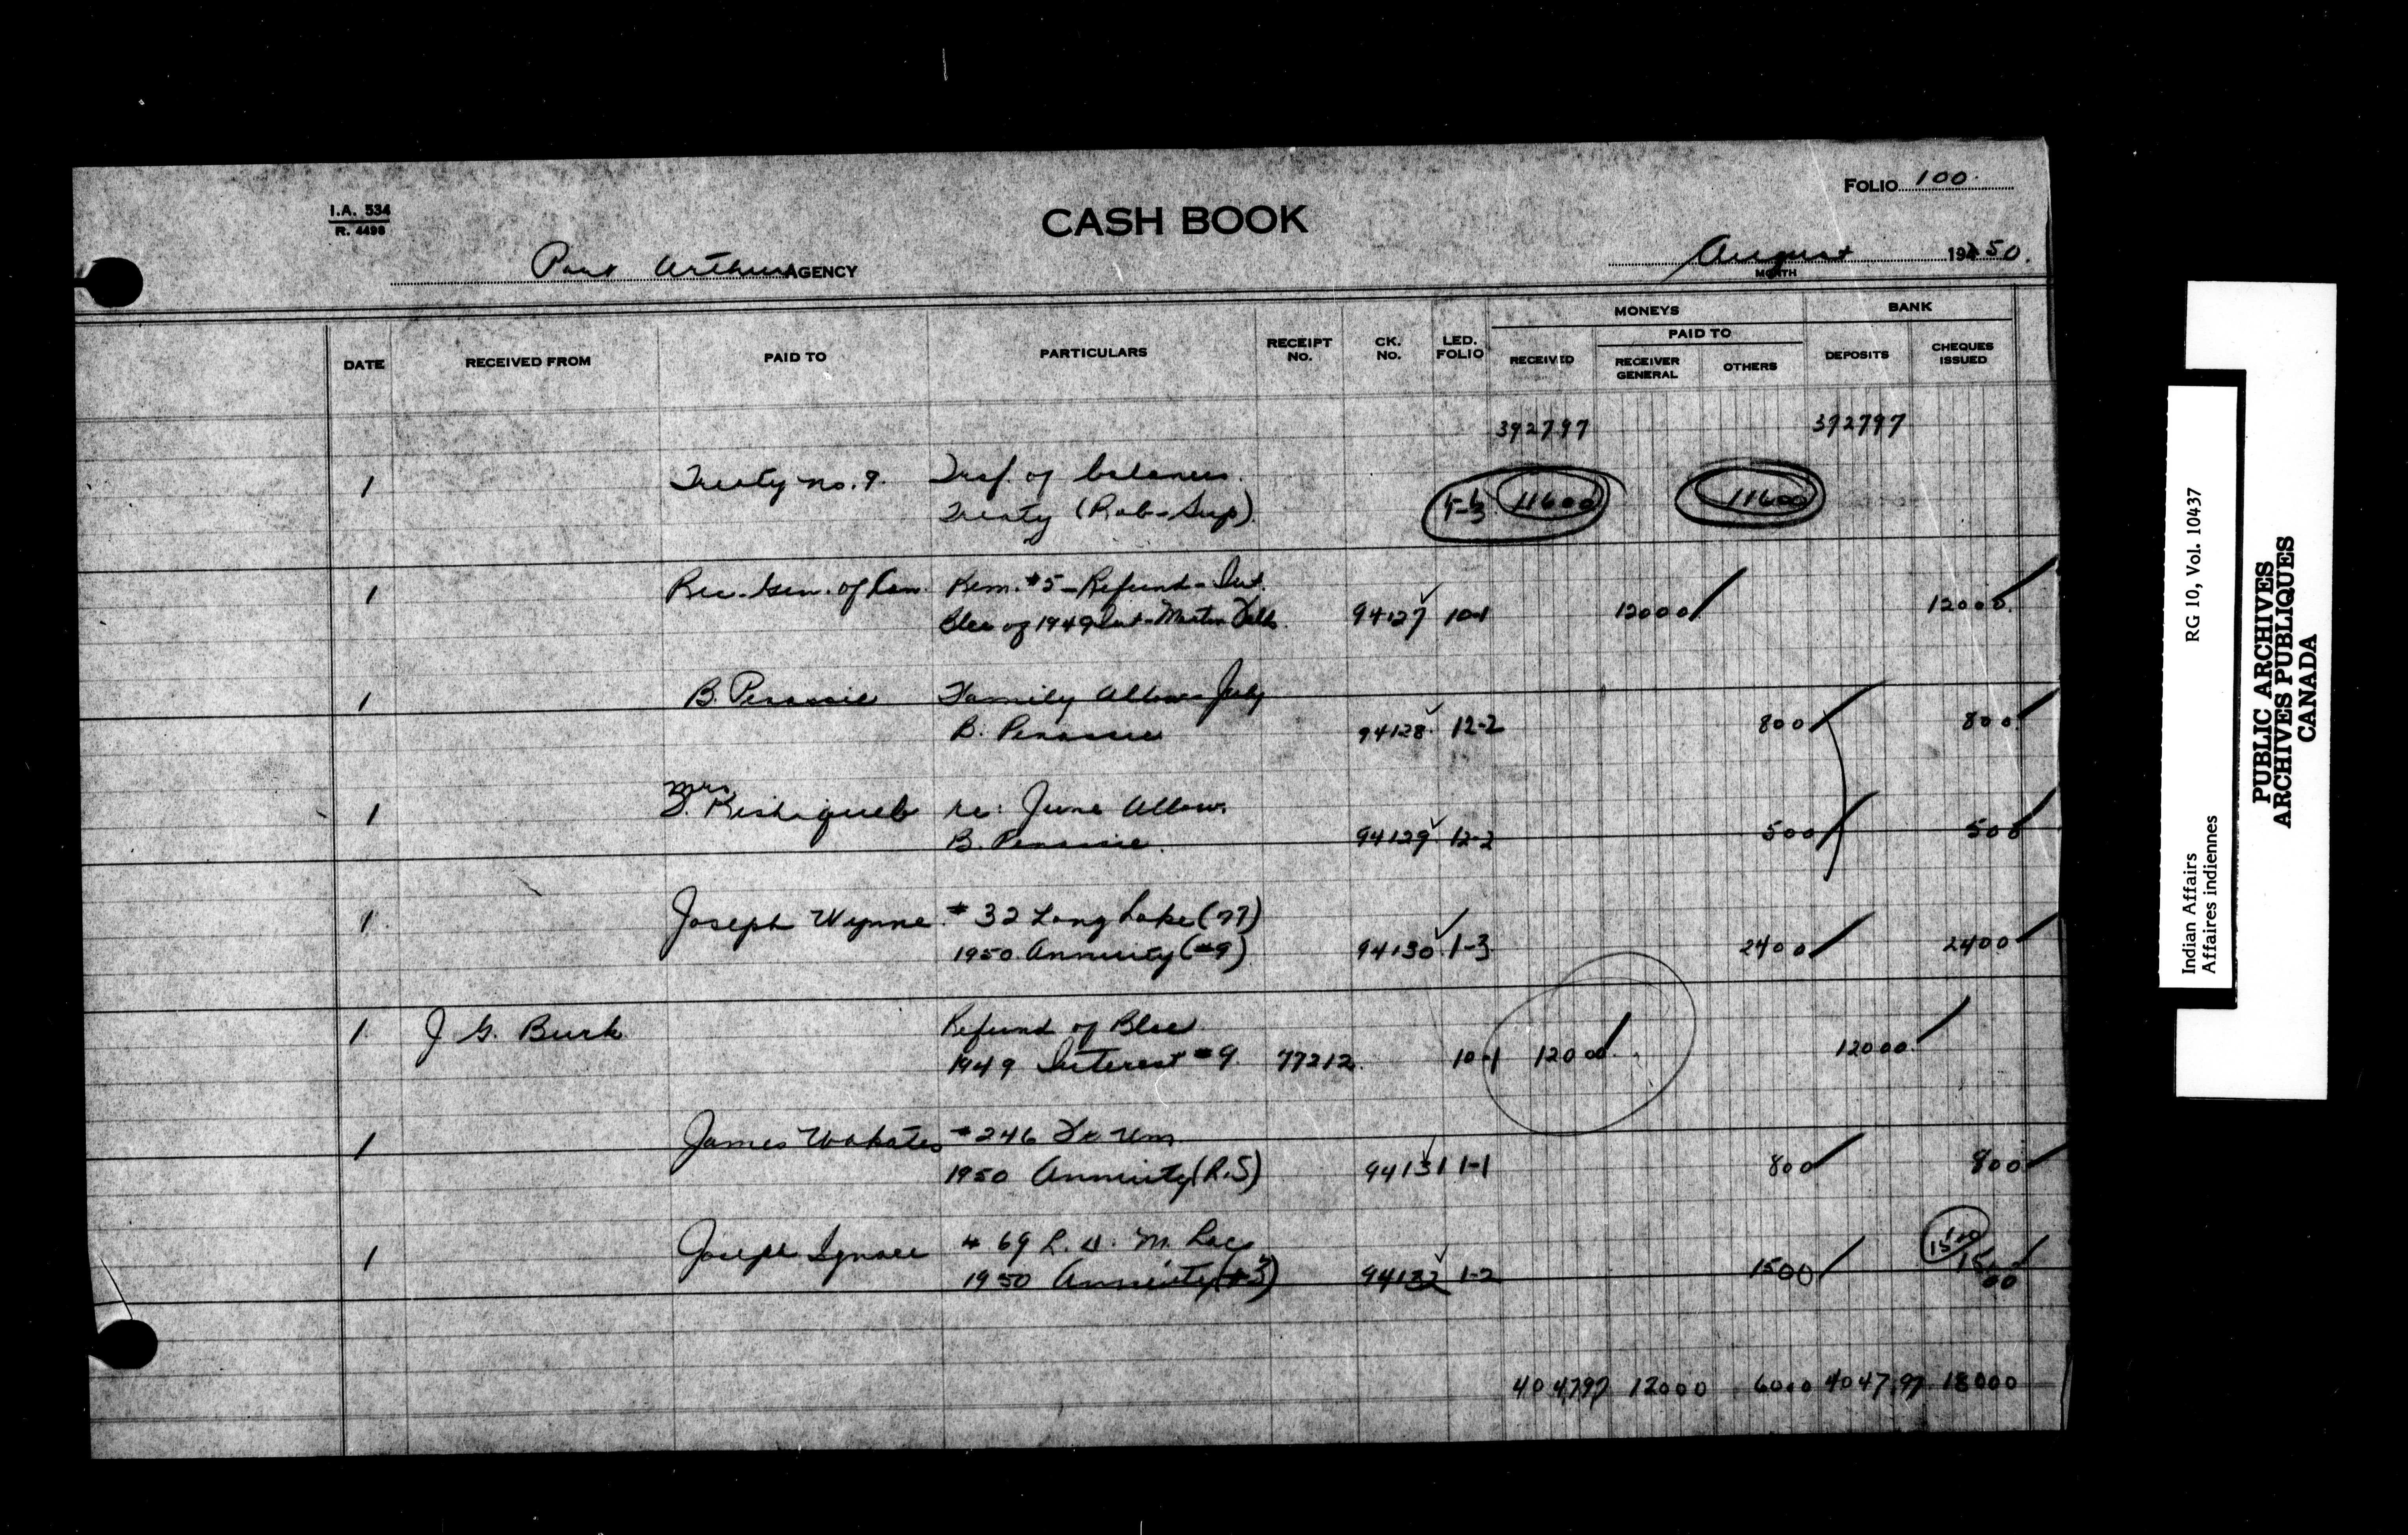 FOLIO 100.
I.A. 534
R. 4498
CASH BOOK
Port Arthur AGENCY
August 1950.
MONTH
MONEYS BANK
PAID TO
DATE RECEIVED FROM PAID TO PARTICULARS RECEIPT NO. CK. NO. LED. FOLIO RECEIVED RECEIVER GENERAL OTHERS DEPOSITS CHEQUES ISSUED
392797 392797
1 Treaty no. 9. Trsf. of balances.
Treaty (Rob-Sup). 11600 11600
1 Rec. Gen. of Can. Rem. #5 - Refund - Int.
of 1949 Int - Martin Falls. 94127 10-1 12000 12000
1 B. Penassie Family Allow July
B. Penassie 94128 12-2 800 800
Mrs
1 re: June Allow.
B. Penassie. 94129 12-2 500 500
1. Joseph Wynne. #32 Long Lake (77)
1950 Annuity (#9) 94130 1-3 2400 2400
1. J. G. Burk Refund of Blce
1949 Interest #9. 77212. 10-1 12000 12000
1 James #246 Ft Wm.
1950 Annuity (R.S) 94131 1-1 800 800
1 Joseph Ignace # 69 L. D. M. Lacs
1950 Annuity (#3) 94132 1-2 1500 1500
404797 12000 6000 404797 18000
Indian Affairs RG 10, Vol. 10437
Affaires indiennes
PUBLIC ARCHIVES
ARCHIVES PUBLIQUES
CANADA